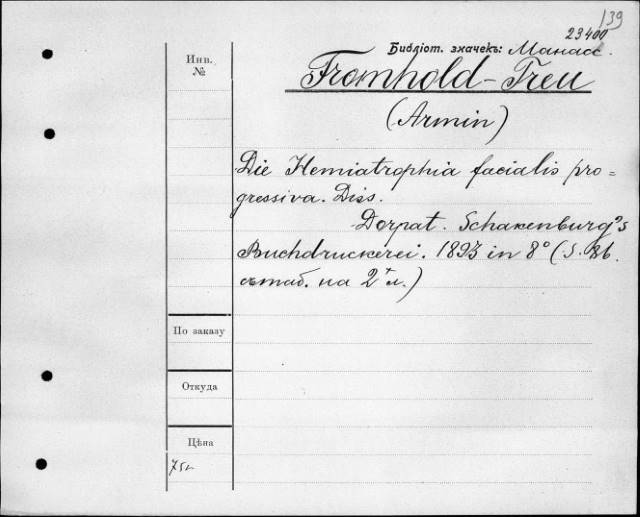 139
23400
Библіот. значекъ: Манасс.
Инв.
№
Fromhold-Treu
(Armin)
Die Hemiatrophia facialis pro=
gressiva. Diss.
Dorpat. Schakenburg's
Buchdruckerei. 1893 in 8° (S.
съ таб. на 2 л.)
По заказу
Откуда
Цѣна
75к